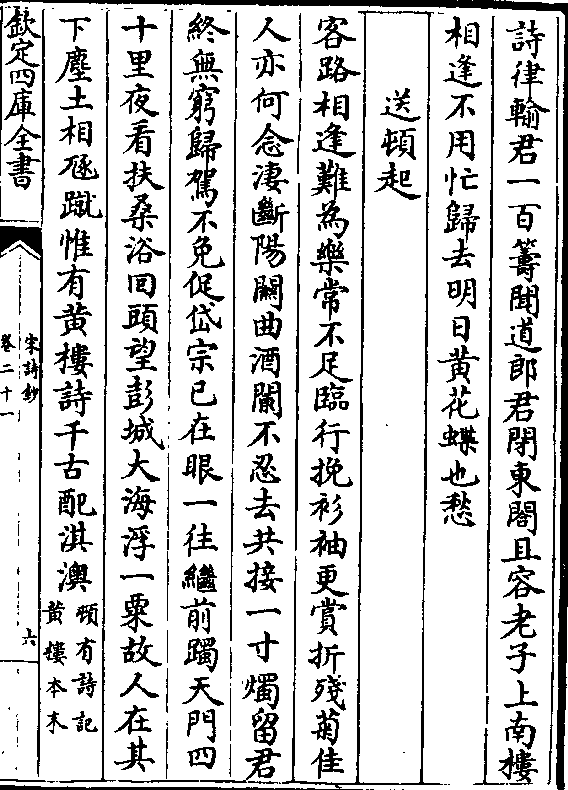 詩律輸君一百籌聞道郎君閉東閤且容老子上南樓
相逢不用忙歸去明日黄花蝶也愁
送頓起
客路相逢難為樂常不足臨行挽衫袖更賞折殘菊佳
人亦何念凄斷陽關曲酒闌不忍去共接一寸燭留君
終無窮歸駕不免促岱宗已在眼一往繼前躅天門四
十里夜看扶桑浴回頭望彭城大海浮一粟故人在其
下塵土相豗蹴惟有黄樓詩千古配淇澳頓有詩記
黄樓本末
欽定四庫全書
宋詩鈔
卷二十一
六